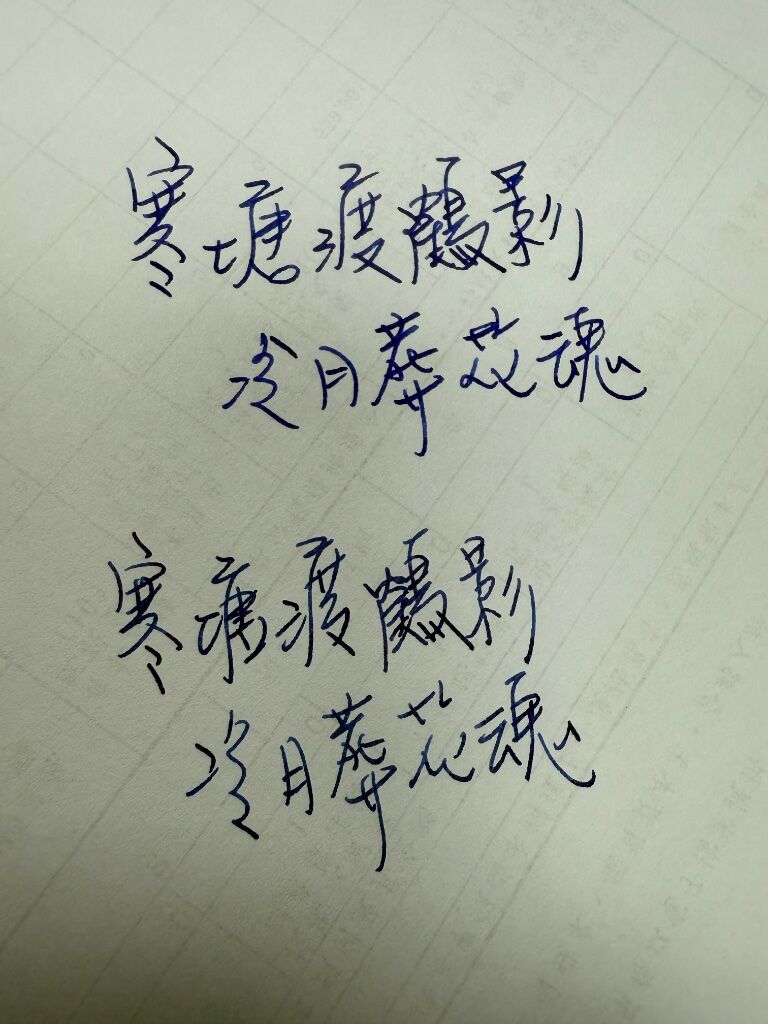 寒塘渡鶴影
冷月葬花魂
寒塘渡鶴影
冷月葬花魂